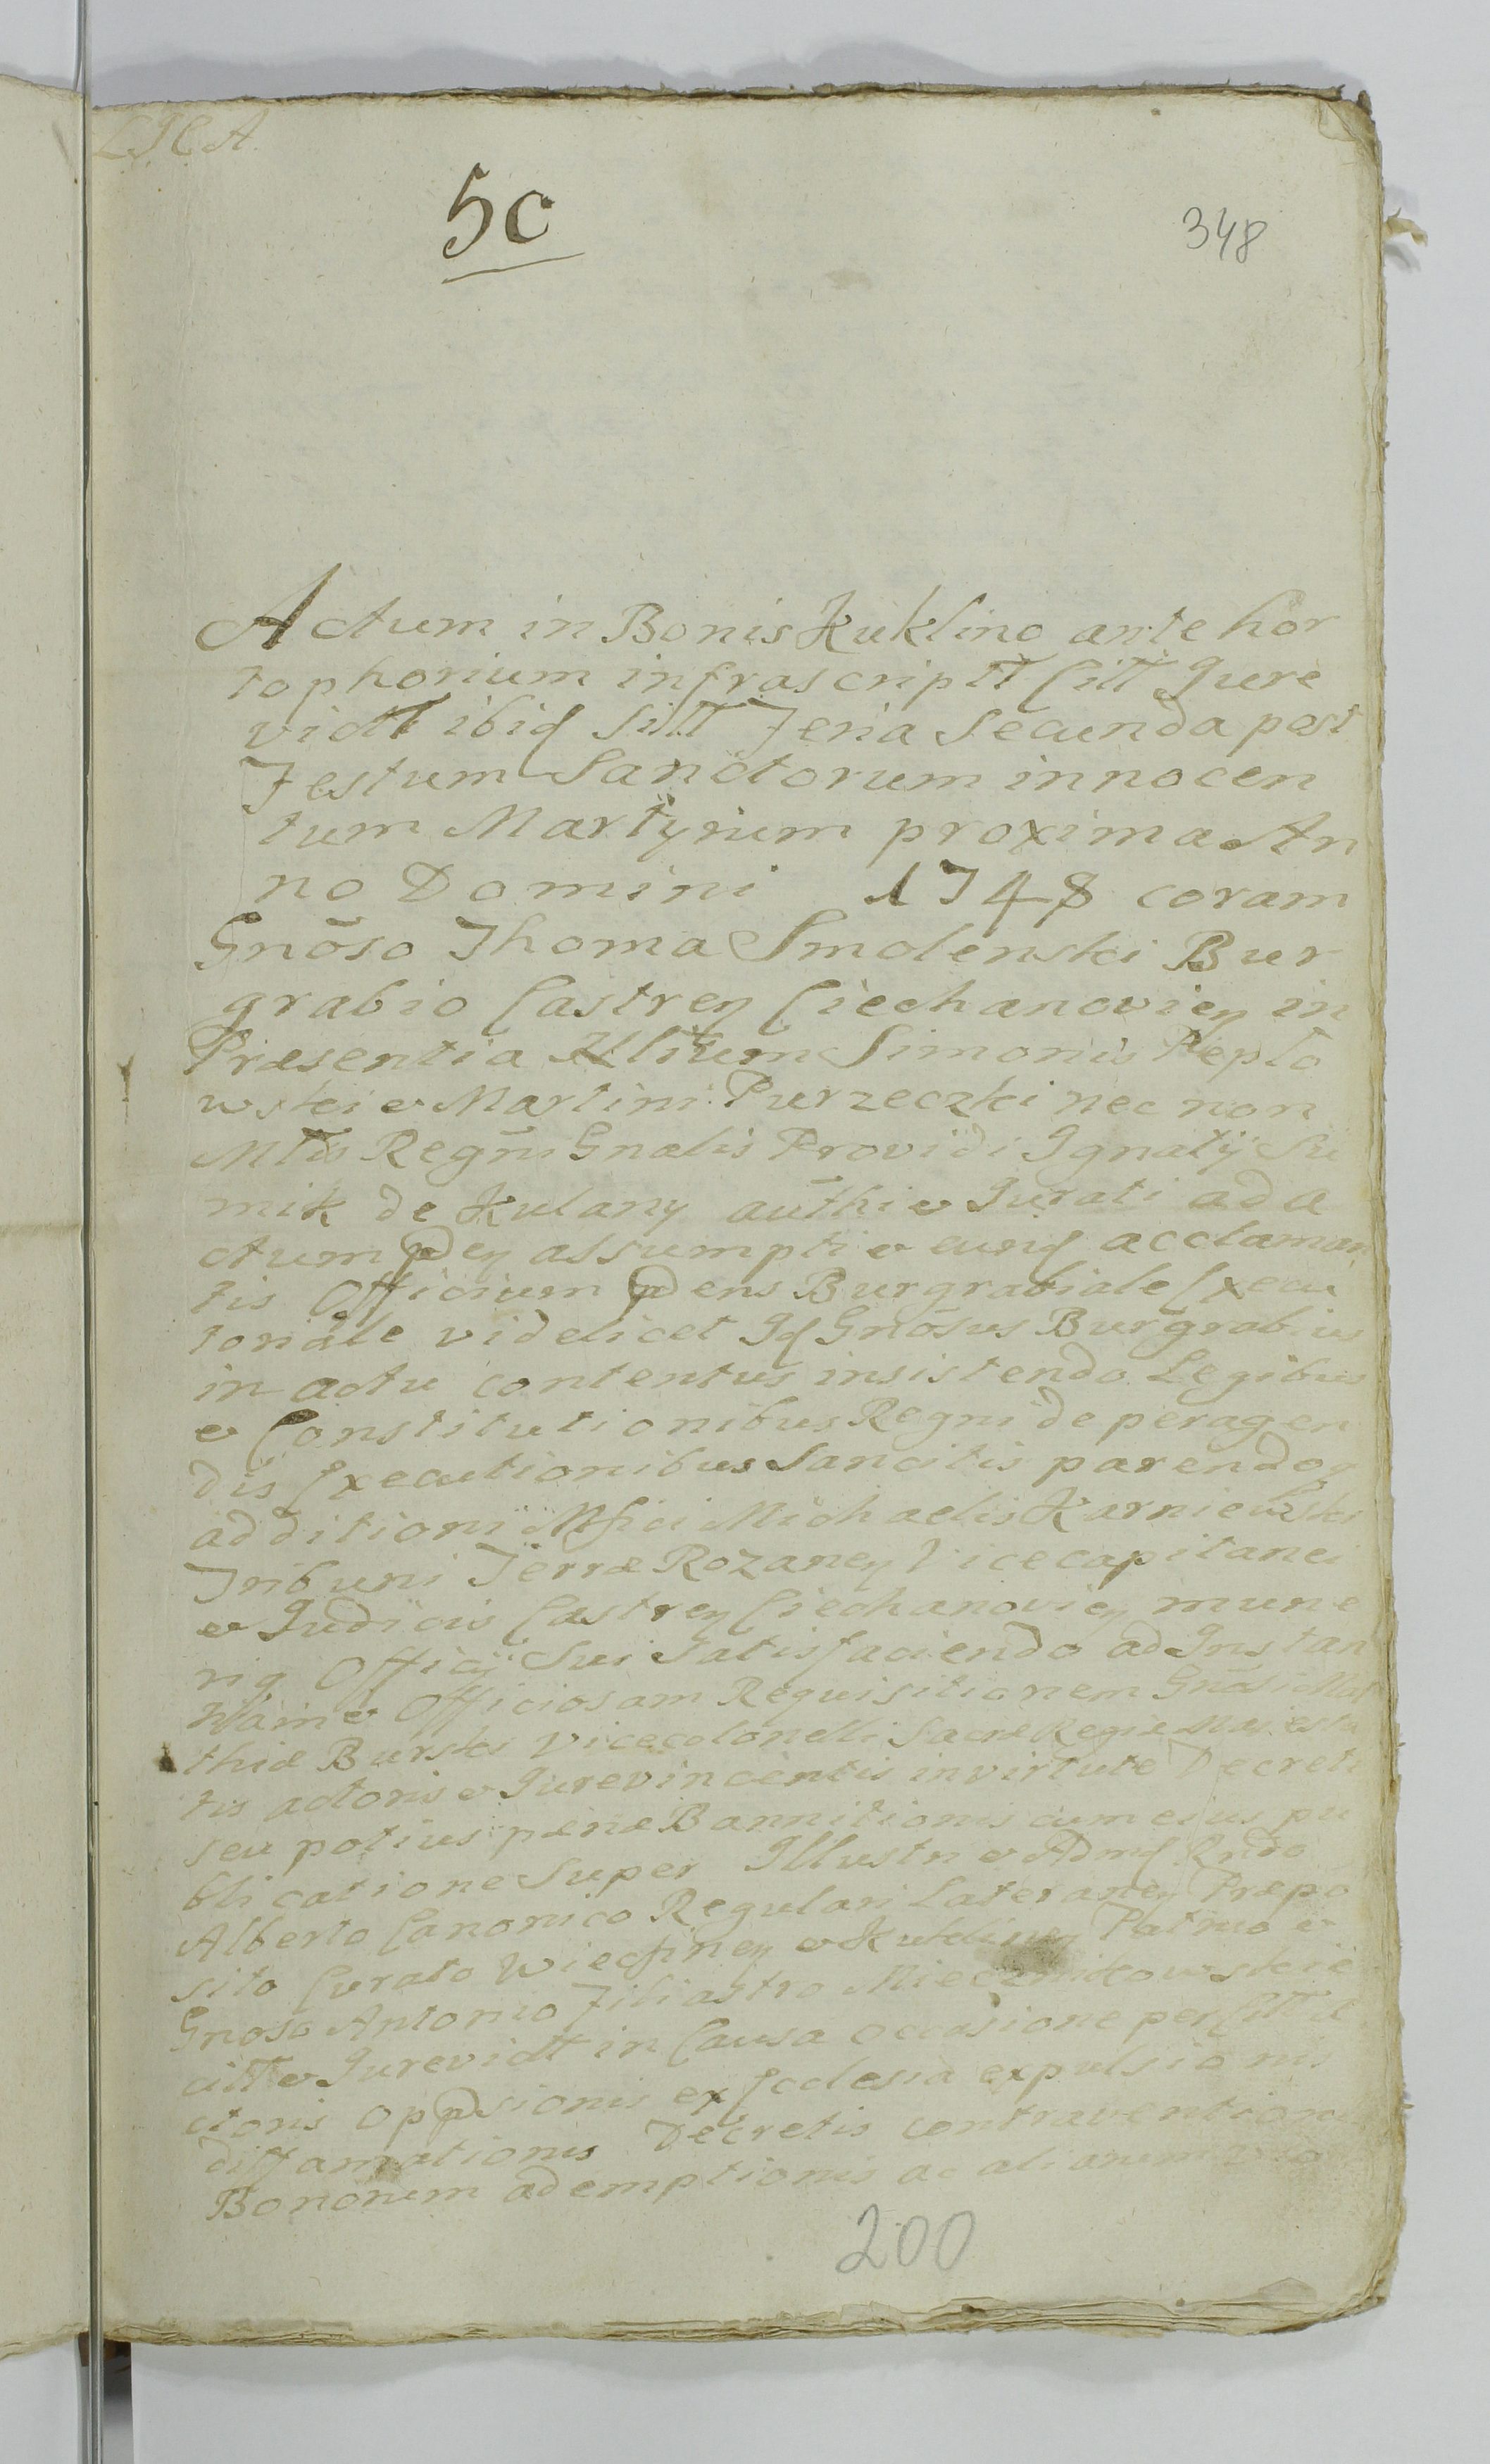 5c
348
Actum in Bonis Kuklino ante hor
tophorium infrascriptt Citt Jure
victt ibiq Sitt Feria Secunda post
Festum Sanctorum innocen
tum Martyrium proxima An
no Domini 1748 coram
Gnōso Thoma Smolenski Bur
grabio Castren Ciechanovien in
Præsentia Ulium Simonis Pepło
wski et Martini Purzeczki nec non
Mtis Regni Gnalis Providi Ignatij Su
mik de Kulany authi et Jurati ad a
ctum pden assumpti et eunq acclaman
tis Officium pdens Burgrabiale Execu
toriale videlicet Iq Gnōsus Burgrabius
in actu contentus insistendo Legibus
et Constitutionibus Regni de peragen
dis Executionibus Sancitis parendoq
additioni Mfici Michaelis Karniewski
Tribuni Terræ Rozanen Vicecapitanei
et Judicis Castren Ciechanovien mune
riq Officij Sui Satisfaciendo ad Instan
tiam et Officiosam Requisitionem Gnōsi Mat
thiæ Burski Vicecolonelli Sacræ Regiæ Majesta
tis actoris et Jurevincentis in virtute Decreti
seu potius pænæ Bannitionis cum eius pu
blicatione Super Illustri et Admq Rndo
Alberto Canonico Regulari Lateranen Præpo
sito Curato Wiecfinen et Kuklinen Patruo et
Gnoso Antonio Filiastro Miecznikowskie
citt et Jurevictt in Causa occasione per Citt a
ctoris oppsionis ex Ecclesia expulsionis
diffamationis Decretis contraventionis
Bonorum ademptionis ac aliarum
200